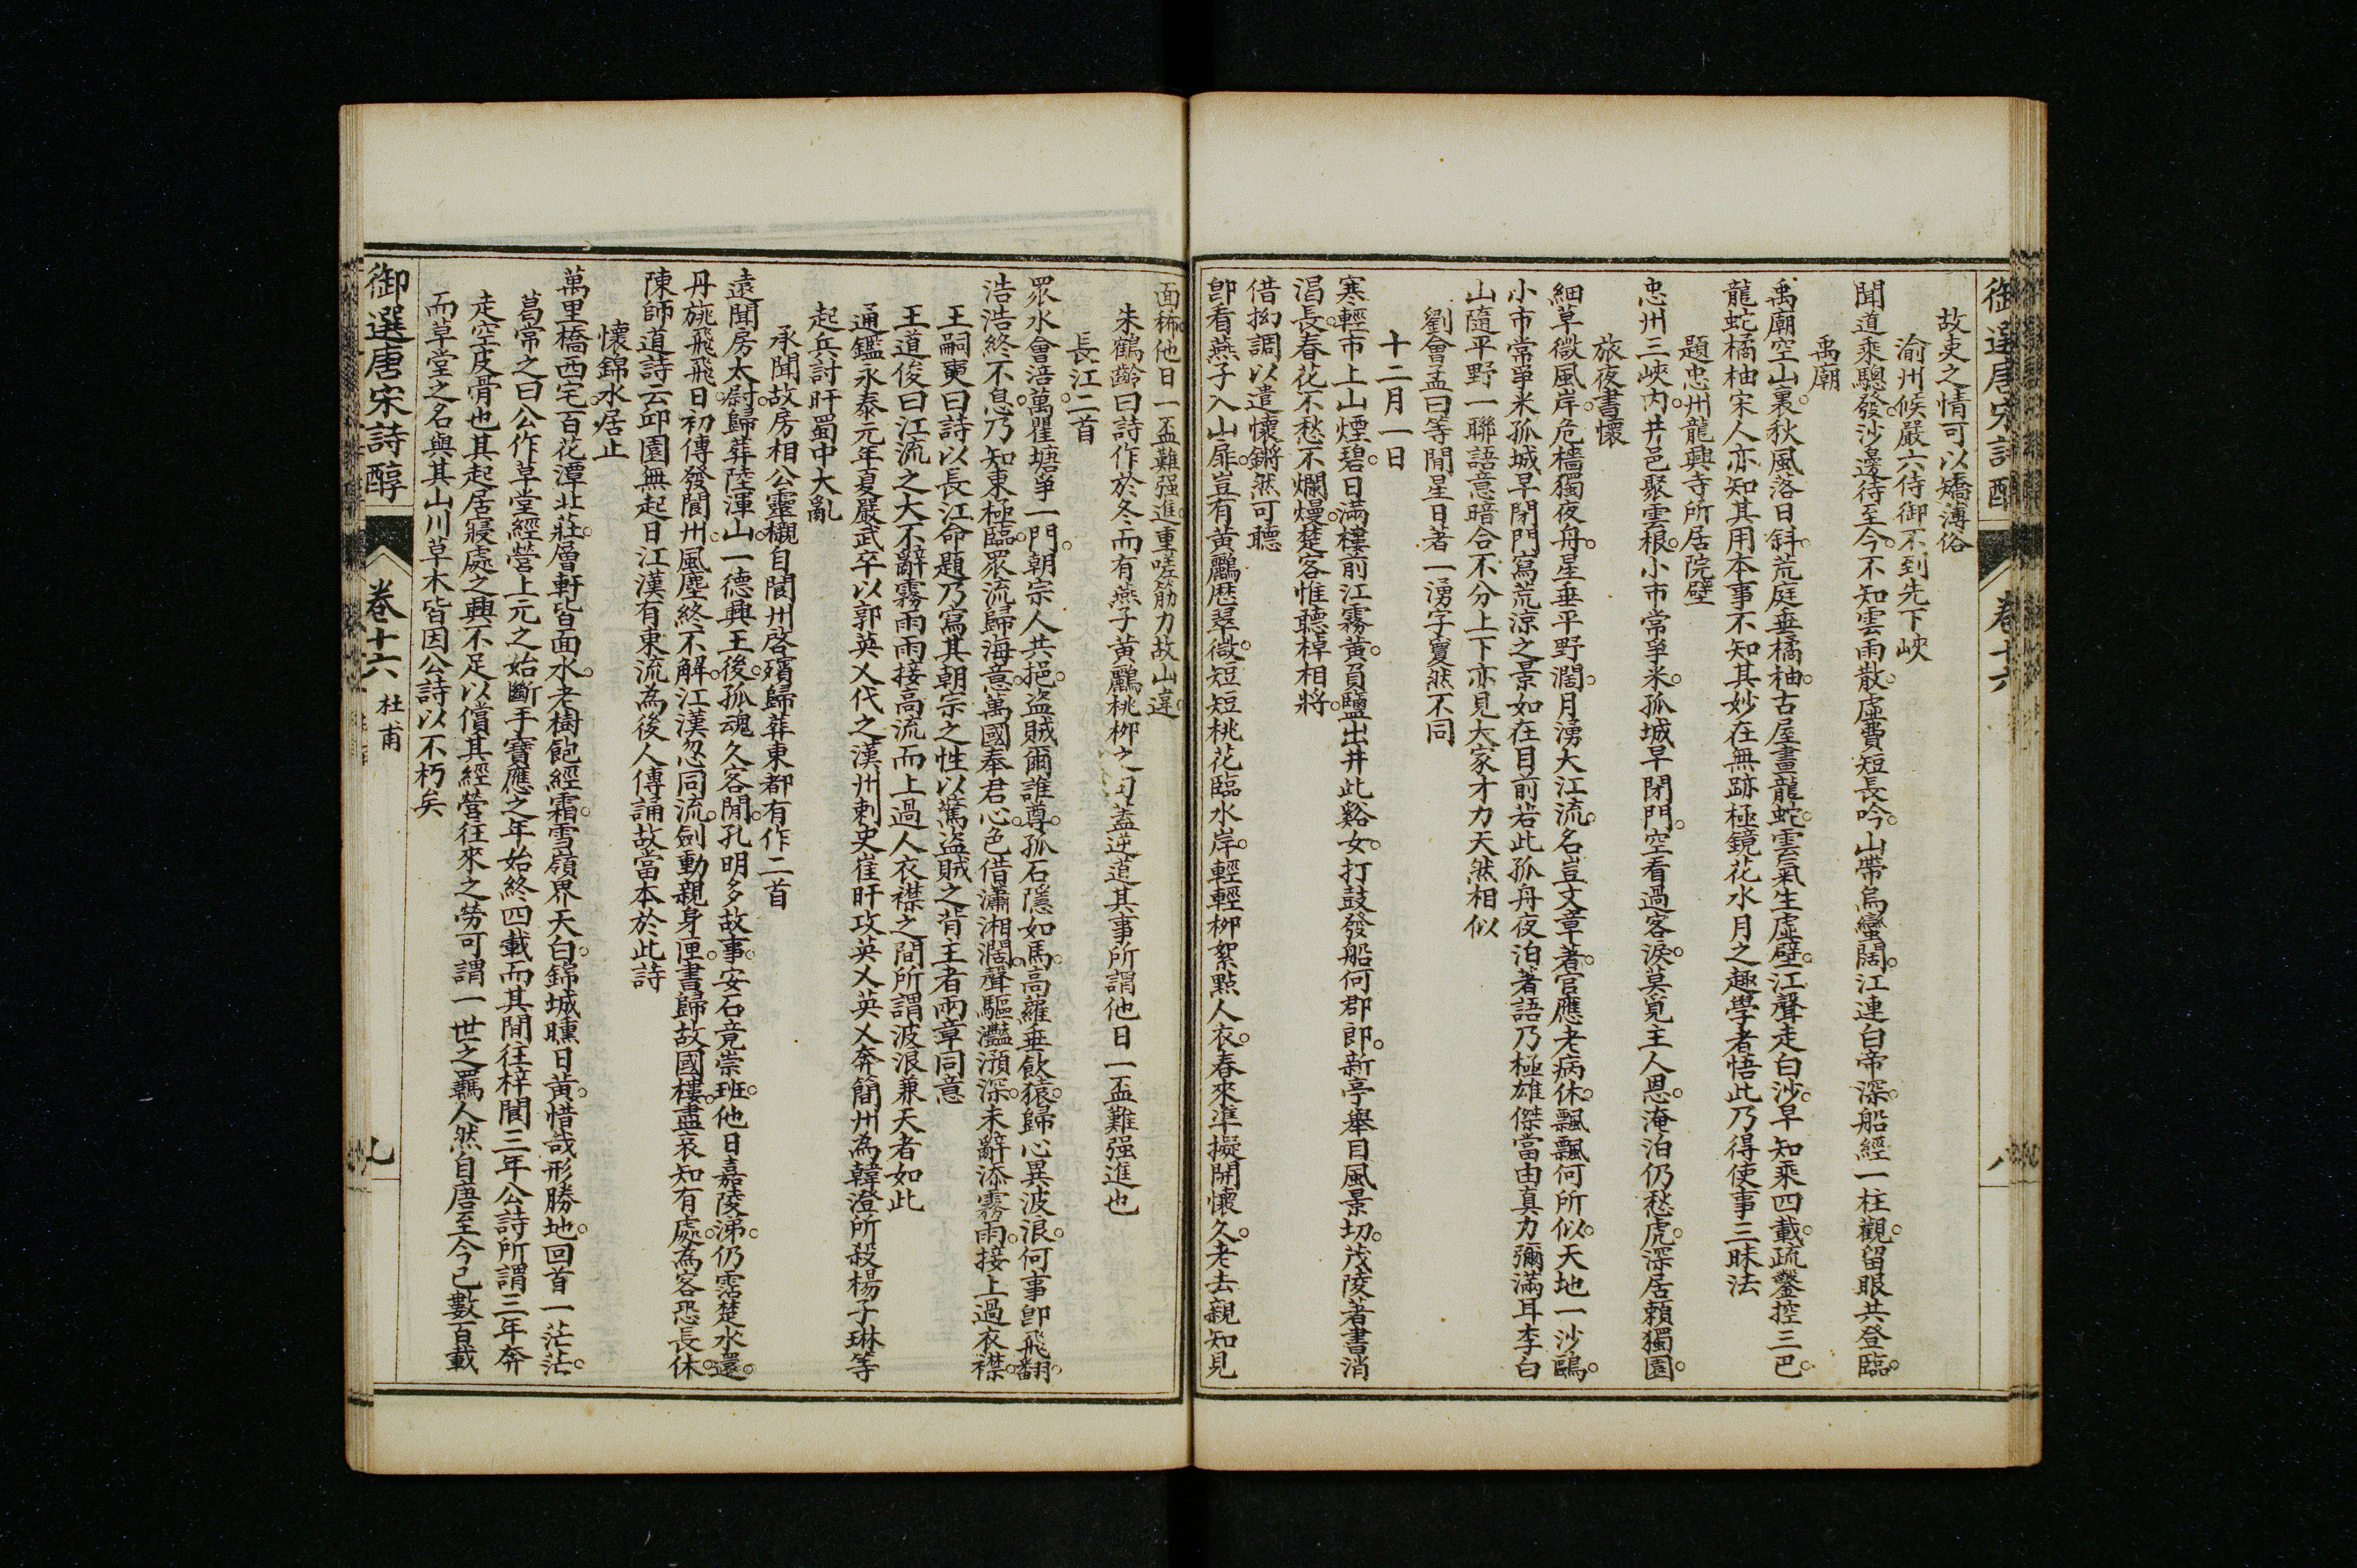 御選唐宋詩醇 卷十六 八
故吏之情可以矯薄俗
渝州候嚴六侍御不到先下峽
聞道乘驄發沙邊待至今不知雲雨散虛費短長吟山帶烏蠻闊江連白帝深船經一柱觀留眼共登臨
禹廟
禹廟空山裏秋風落日斜荒庭垂橘柚古屋畫龍蛇雲氣生虛壁江聲走白沙早知乘四載疏鑿控三巴
龍蛇橘柚宋人亦知其用本事不知其妙在無跡極鏡花水月之趣學者悟此乃得使事三昧法
題忠州龍興寺所居院壁
忠州三峽內井邑聚雲根小市常爭米孤城早閉門空看過客淚莫覓主人恩淹泊仍愁虎深居賴獨園
旅夜書懷
細草微風岸危檣獨夜舟星垂平野闊月湧大江流名豈文章著官應老病休飄飄何所似天地一沙鷗
小市常爭米孤城早閉門寫荒涼之景如在目前若此孤舟夜泊著語乃極雄傑當由真力彌滿耳李白
山隨平野一聯語意暗合不分上下亦見大家才力天然相似
劉會孟曰等閒星日著一湧字敻然不同
十二月一日
寒輕市上山煙碧日滿樓前江霧黃負鹽出井此谿女打鼓發船何郡郎新亭舉目風景切茂陵著書消
渴長春花不愁不爛熳楚客惟聽棹相將
借拗調以遣懷鏘然可聽
卽看燕子入山扉豈有黃鸝歷翠微短短桃花臨水岸輕輕柳絮點人衣春來準擬開懷久老去親知見
面稀他日一盃難强進重嗟筋力故山違
朱鶴齡曰詩作於冬而有燕子黃鸝桃柳之句蓋逆道其事所謂他日一盃難强進也
長江二首
眾水會涪萬瞿塘爭一門朝宗人共挹盜賊爾誰尊孤石隱如馬高蘿垂飲猿歸心異波浪何事卽飛翻
浩浩終不息乃知東極臨眾流歸海意萬國奉君心色借瀟湘闊聲驅灩澦深未辭添霧雨接上過衣襟
王嗣奭曰詩以長江命題乃寫其朝宗之性以罵盜賊之背王者兩章同意
王道俊曰江流之大不辭霧雨雨接高流而上過人衣襟之間所謂波浪兼天者如此
通鑑永泰元年夏嚴武卒以郭英乂代之漢州刺史崔旰攻英乂英乂奔簡州為韓澄所殺楊子琳等
起兵討旰蜀中大亂
承聞故房相公靈櫬自閬州啓殯歸葬東都有作二首
遠聞房太尉歸葬陸渾山一德興王後孤魂久客閒孔明多故事安石竟崇班他日嘉陵涕仍霑楚水還
丹旐飛飛日初傳發閬州風塵終不解江漢忽同流劍動親身匣書歸故國樓盡哀知有處為客恐長休
陳師道詩云邱園無起日江漢有東流為後人傳誦故當本於此詩
懷錦水居止
萬里橋西宅百花潭北莊層軒皆面水老樹飽經霜雪嶺界天白錦城曛日黃惜哉形勝地回首一茫茫
葛常之曰公作草堂經營上元之始斷手寶應之年始終四載而其間往梓閬三年公詩所謂三年奔
走空皮骨也其起居寢處之興不足以償其經營往來之勞可謂一世之羈人然自唐至今已數百載
而草堂之名與其山川草木皆因公詩以不朽矣
御選唐宋詩醇 卷十六 杜甫 九